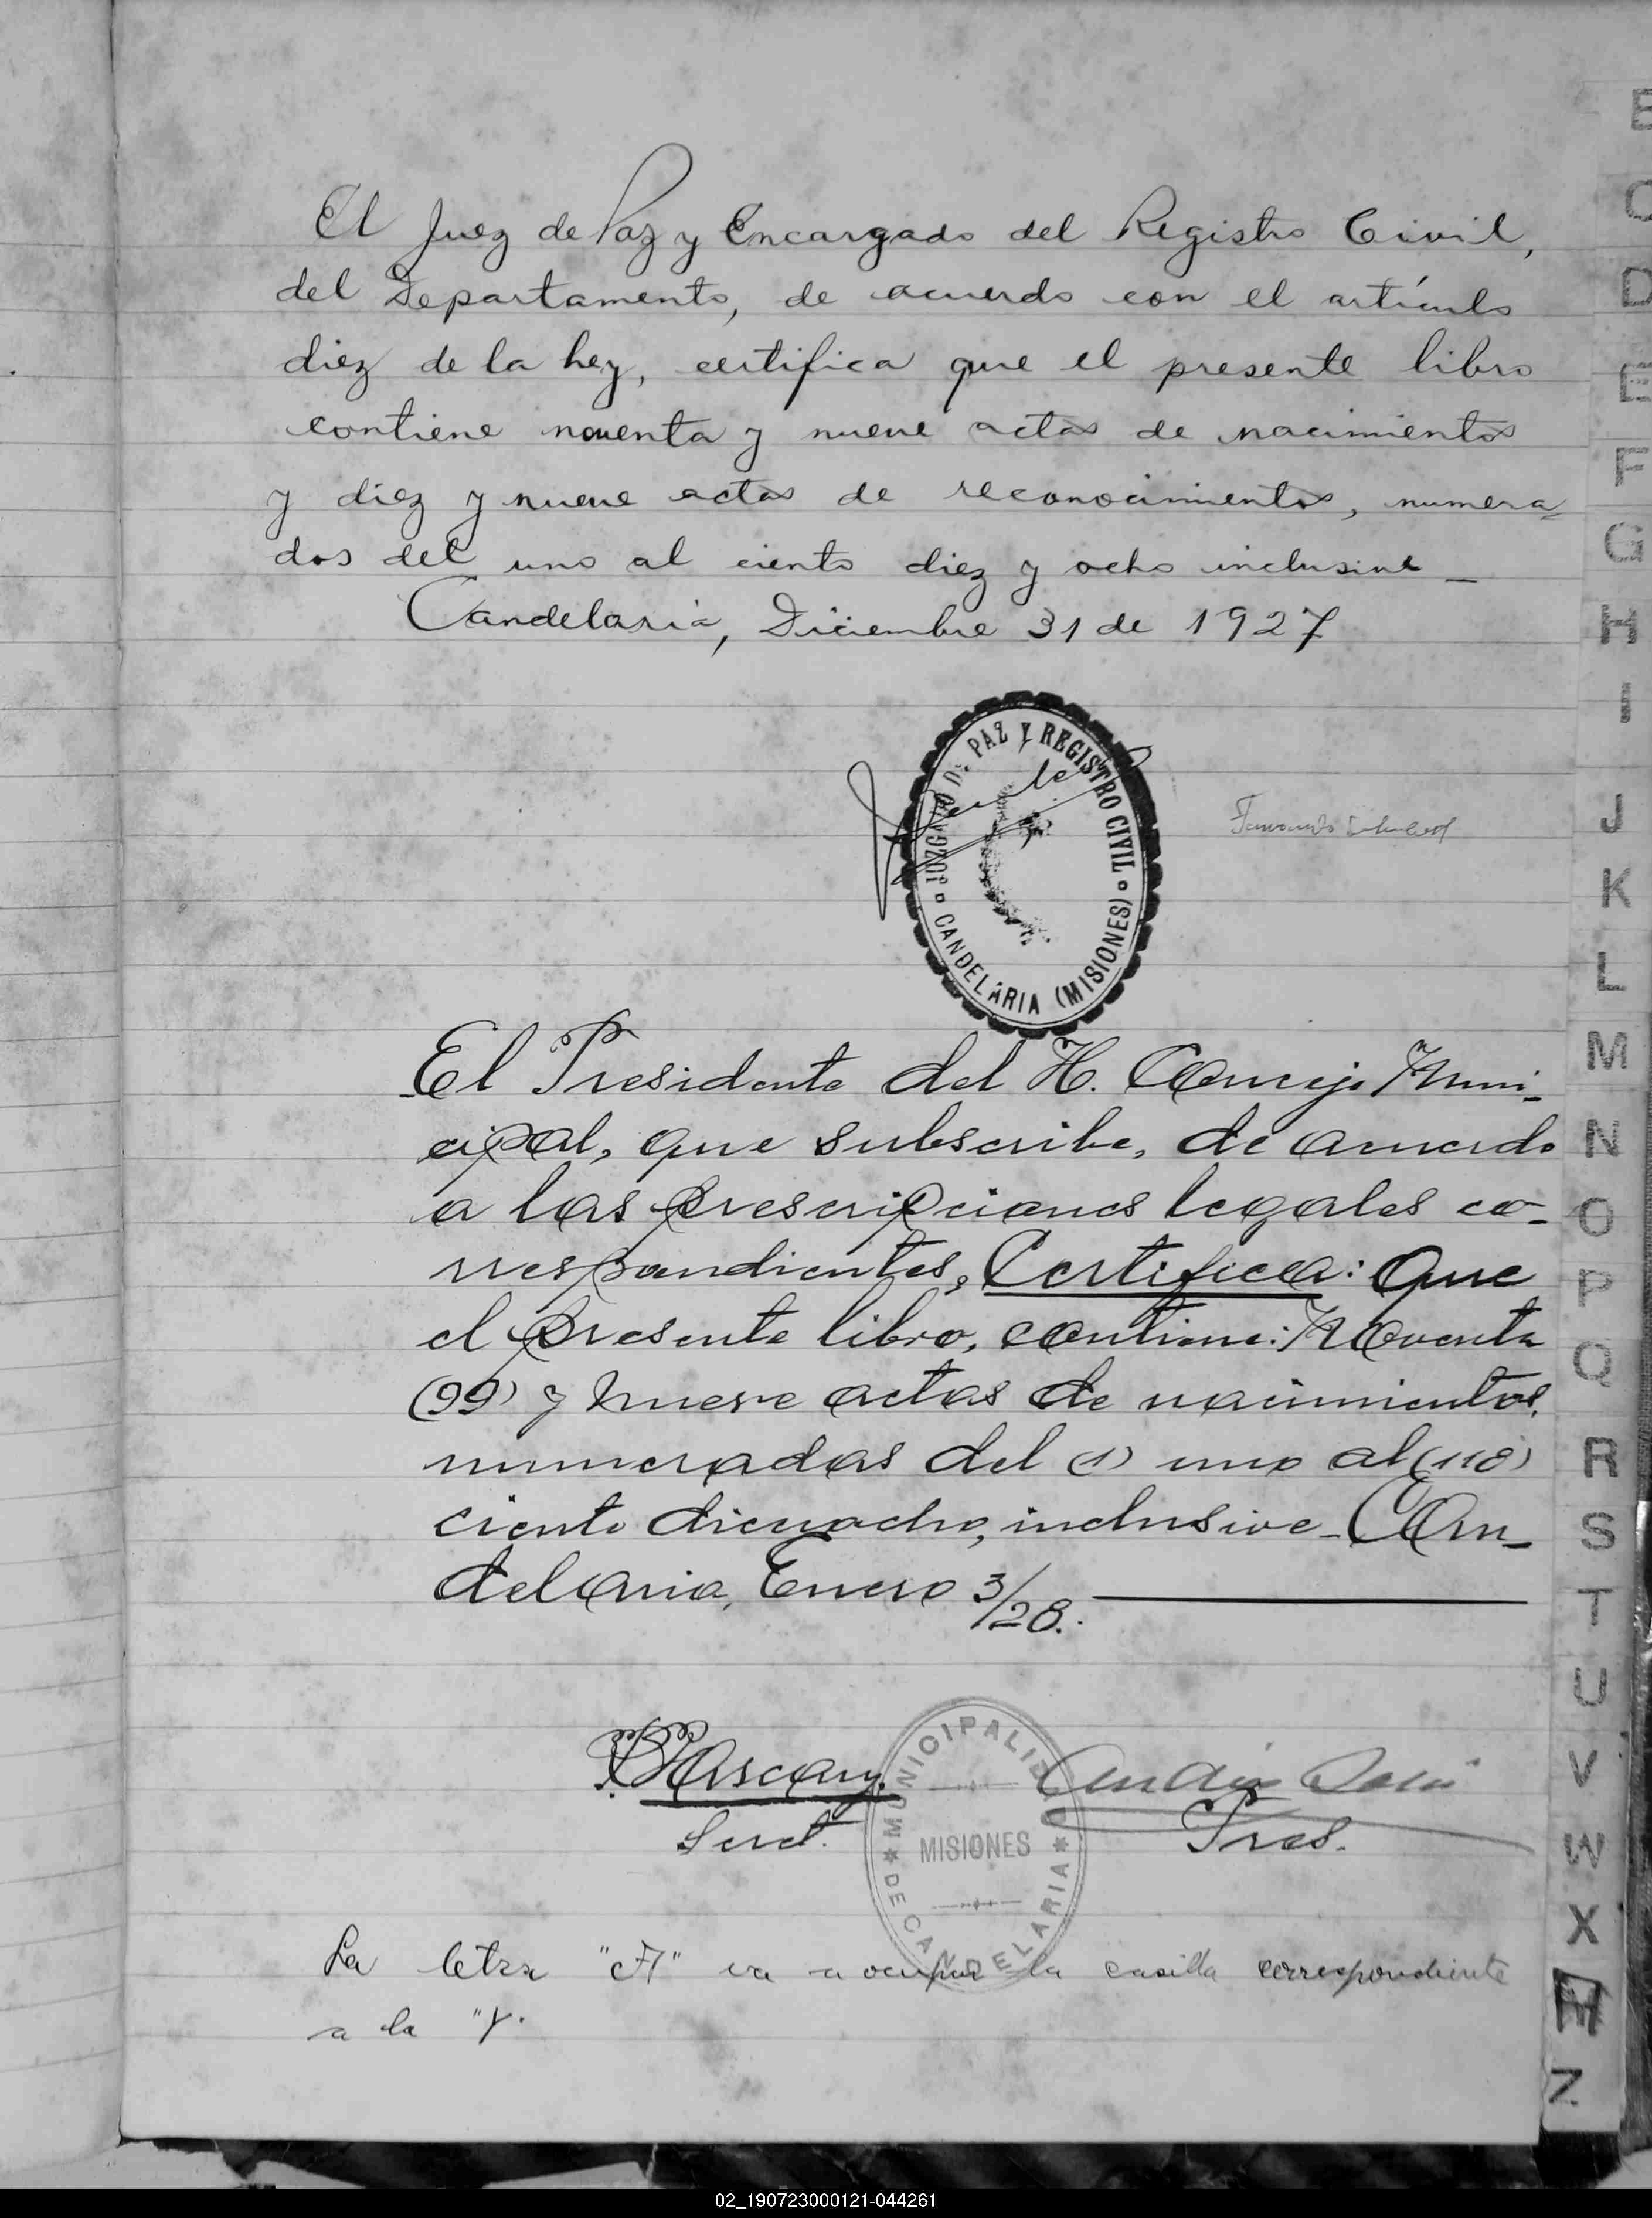 El Juez de Paz y Encargado del Registro Civil,
del Departamento, de acuerdo con el artículo
diez de la Ley, certifica que el presente libro
contiene noventa y nueve actas de nacimientos
y diez y nueve actas de reconocimientos, numera=
dos del uno al ciento diez y ocho inclusive _
Candelaria, Diciembre 31 de 1927
JUZGADO DE PAZ Y REGISTRO CIVIL
CANDELARIA (MISIONES)
El Presidente del H. Concejo Muni-
cipal, que subscribe, de acuerdo
a las prescripciones legales co-
rrespondientes, Certifica: Que
el presente libro, contiene: Noventa
(99) y nueve actas de nacimientos,
numeradas del (1) uno al (118)
ciento dieciocho, inclusive - Can-
delaria, Enero 3/28.
Secret.
Pres.
MUNICIPALIDAD
MISIONES
DE CANDELARIA
La letra "A" va a ocupar la casilla correspondiente
a la "Y.
E
C
D
E
F
G
H
I
J
K
L
M
N
O
P
Q
R
S
T
U
V
W
X
Z
02_190723000121-044261